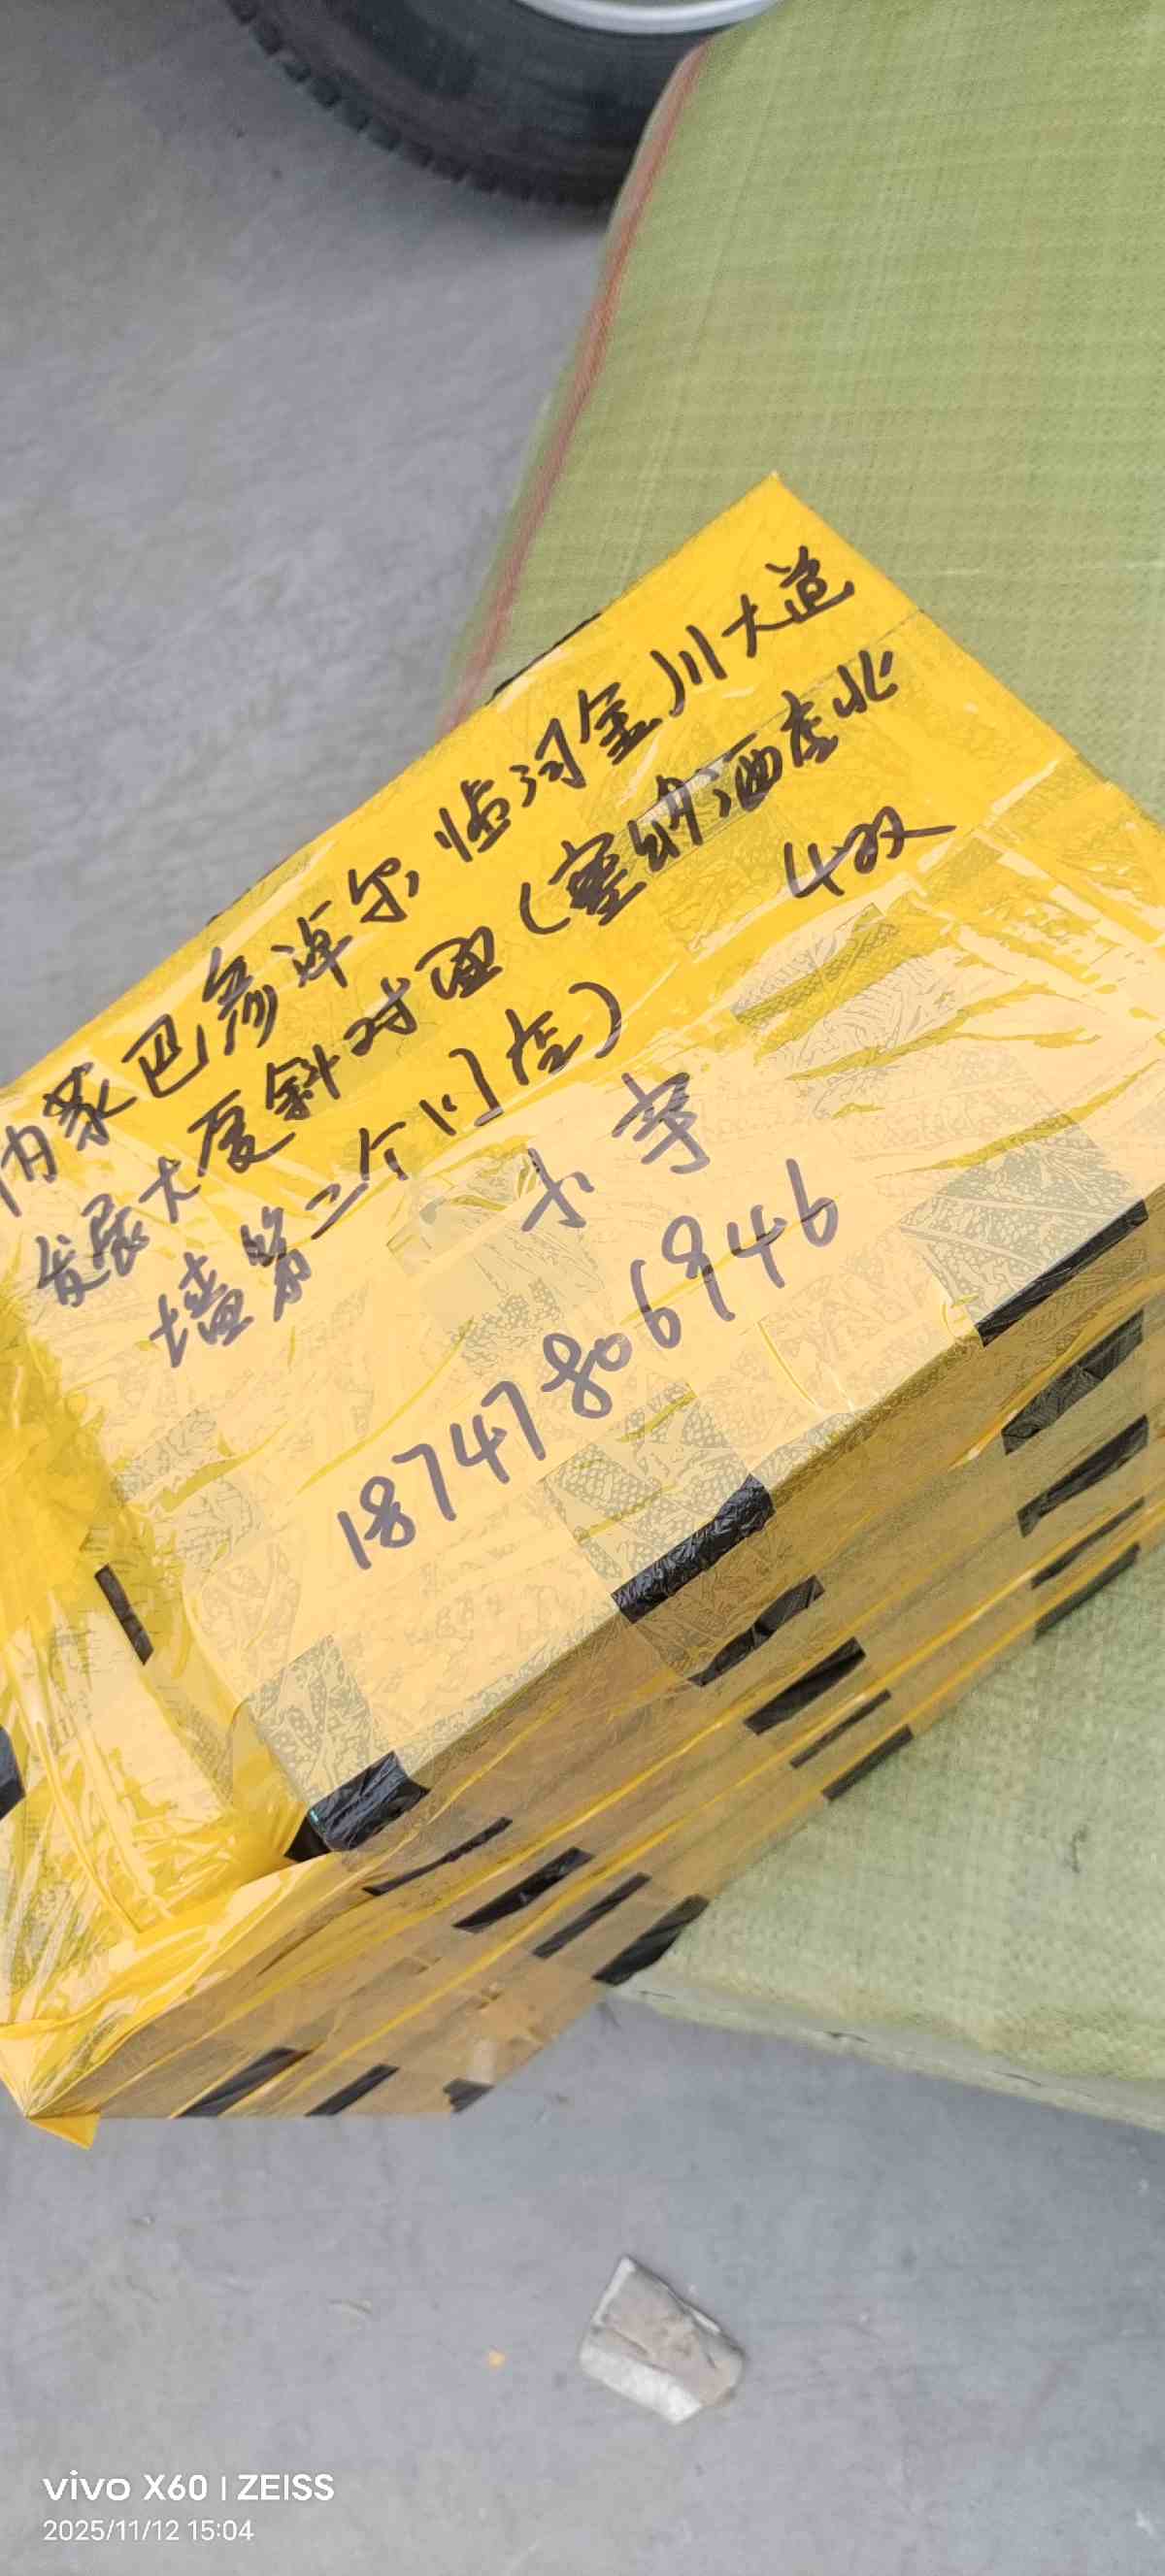 内蒙巴彦淖尔临河金川大道
发展大厦斜对面(塞纳酒店北
墙第二个门店) 4双
小李
18747806946
vivo X60 | ZEISS
2025/11/12 15:04